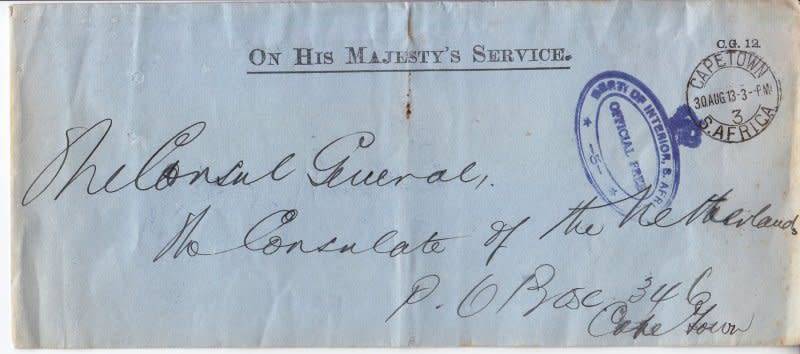 C.G. 12.
ON HIS MAJESTY'S SERVICE.
CAPETOWN
30 AUG 13-3-PM
3
S. AFRICA
DEPT. OF INTERIOR, S. AFR
OFFICIAL FREE
-5-
The Consul General,
The Consulate of the Netherlands
P. O Box 346
Cape Town